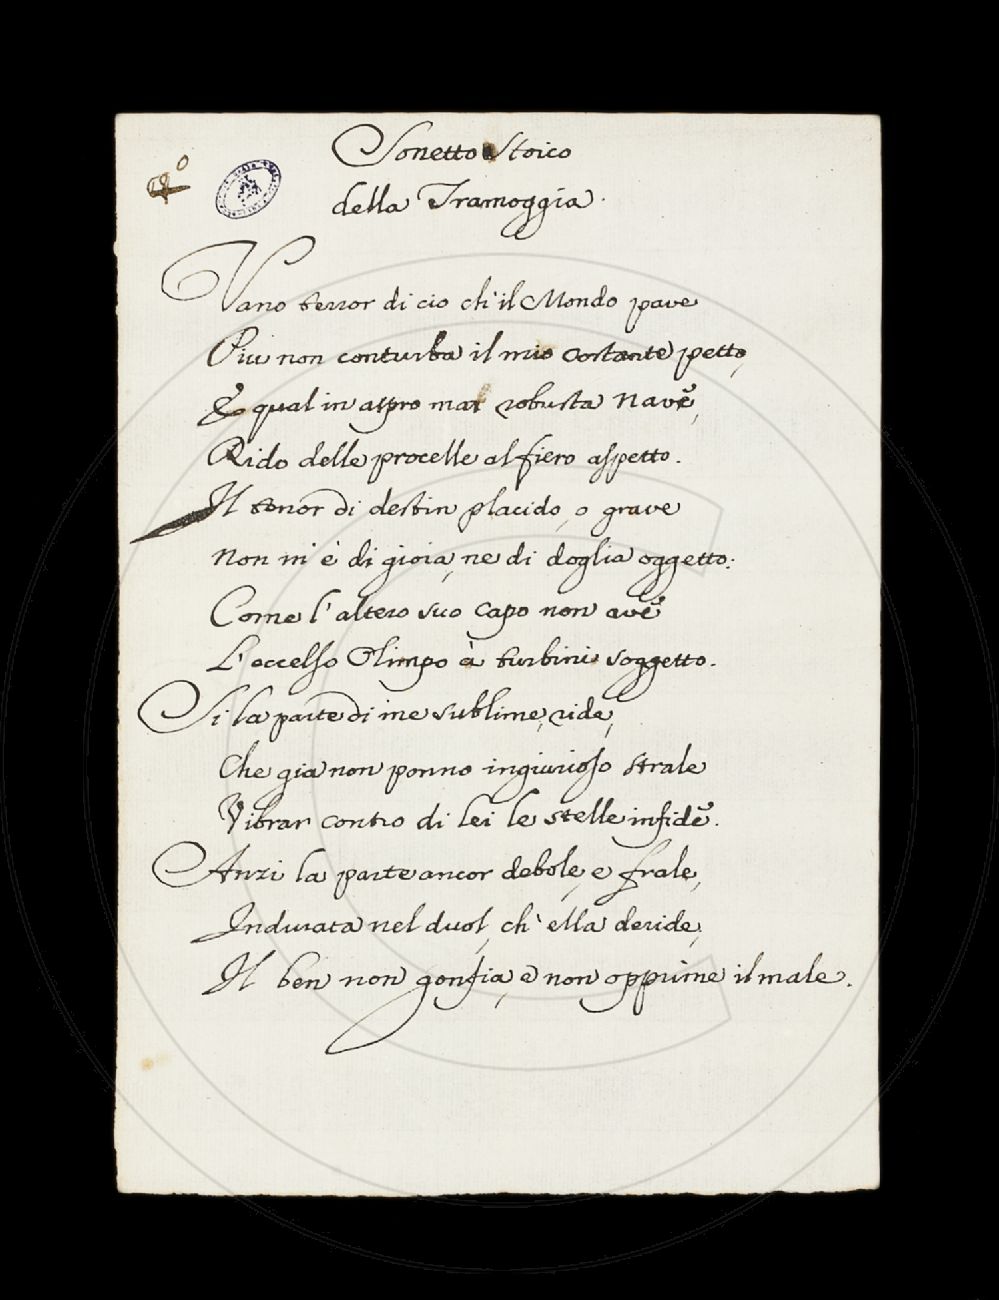 Sonetto Stoico
della Tramoggia.
Vano terror di cio ch'il Mondo pave
Piu non conturba il mio costante petto,
E qual in aspro mar robusta nave,
Rido delle procelle al fiero aspetto.
Il tenor di destin placido, o grave
Non m'è di gioia, ne di doglia oggetto:
Come l'altero suo capo non ave
L'eccelso Olimpo à turbini soggetto.
Si la parte di me sublime, ride,
Che gia non ponno ingiurioso strale
Vibrar contro di lei le stelle infide.
Anzi la parte ancor debole, e frale,
Indurata nel duol, ch'ella deride,
Il ben non gonfia, e non opprime il male.